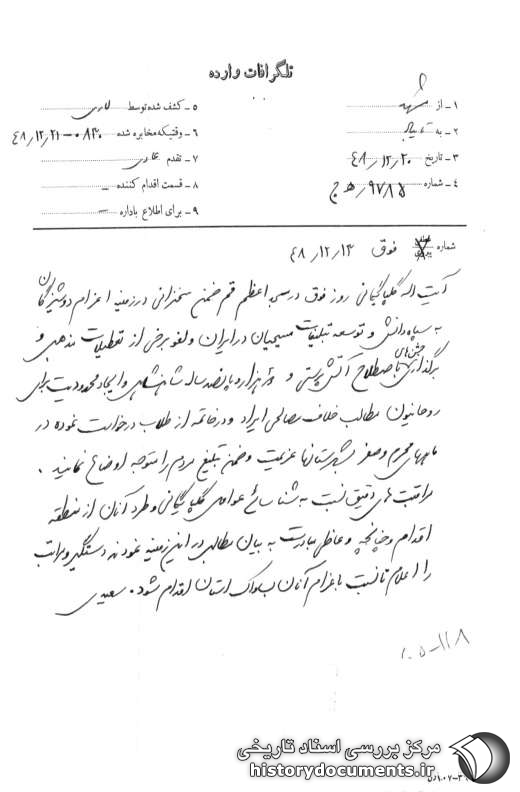 تلگرافات وارده
۱ـ از مشهد
۲ـ به
۳ـ تاریخ ۴۸٫۱۲٫۲۰
۴ـ شماره ۹۷۸۵٫ هـ ج
۵ـ کشف شده توسط
۶ـ وقتیکه مخابره شده ۰۸۳۰ -۴۸٫۱۲٫۲۱
۷ـ تقدم عادی
۸ـ قسمت اقدام کننده ـ
۹ـ برای اطلاع باداره ـ
شماره فوق ۴۸٫۱۲٫۱۳
آیت اله گلپایگانی روز فوق در مسجد اعظم قم ضمن سخنرانی در زمینه اعزام دوشیزگان
به سپاه دانش و توسعه تبلیغات مسیحیان در ایران و لغو برخی از تعطیلات مذهبی و
برگذاری جشن‌های باصطلاح آتش پرستی و دو هزار و پانصد ساله شاهنشاهی و ایجاد محدودیت برای
روحانیون مطالب خلاف مصالحی ایراد و در خاتمه از طلاب درخواست نموده در
ماههای محرم و صفر بشهرستانها عزیمت و ضمن تبلیغ مردم را متوجه اوضاع نمایند .
مراقبت‌های دقیق نسبت به شناسائی عوامل گلپایگانی و طرد آنان از منطقه
اقدام و چنانچه وعاظی مبادرت به بیان مطالبی در این زمینه نمودند دستگیر و مراتب
را اعلام تا نسبت باعزام آنان بساواک استان اقدام شود . سعیدی
۱۰۵-۱۱۸
مرکز بررسی اسناد تاریخی
historydocuments.ir